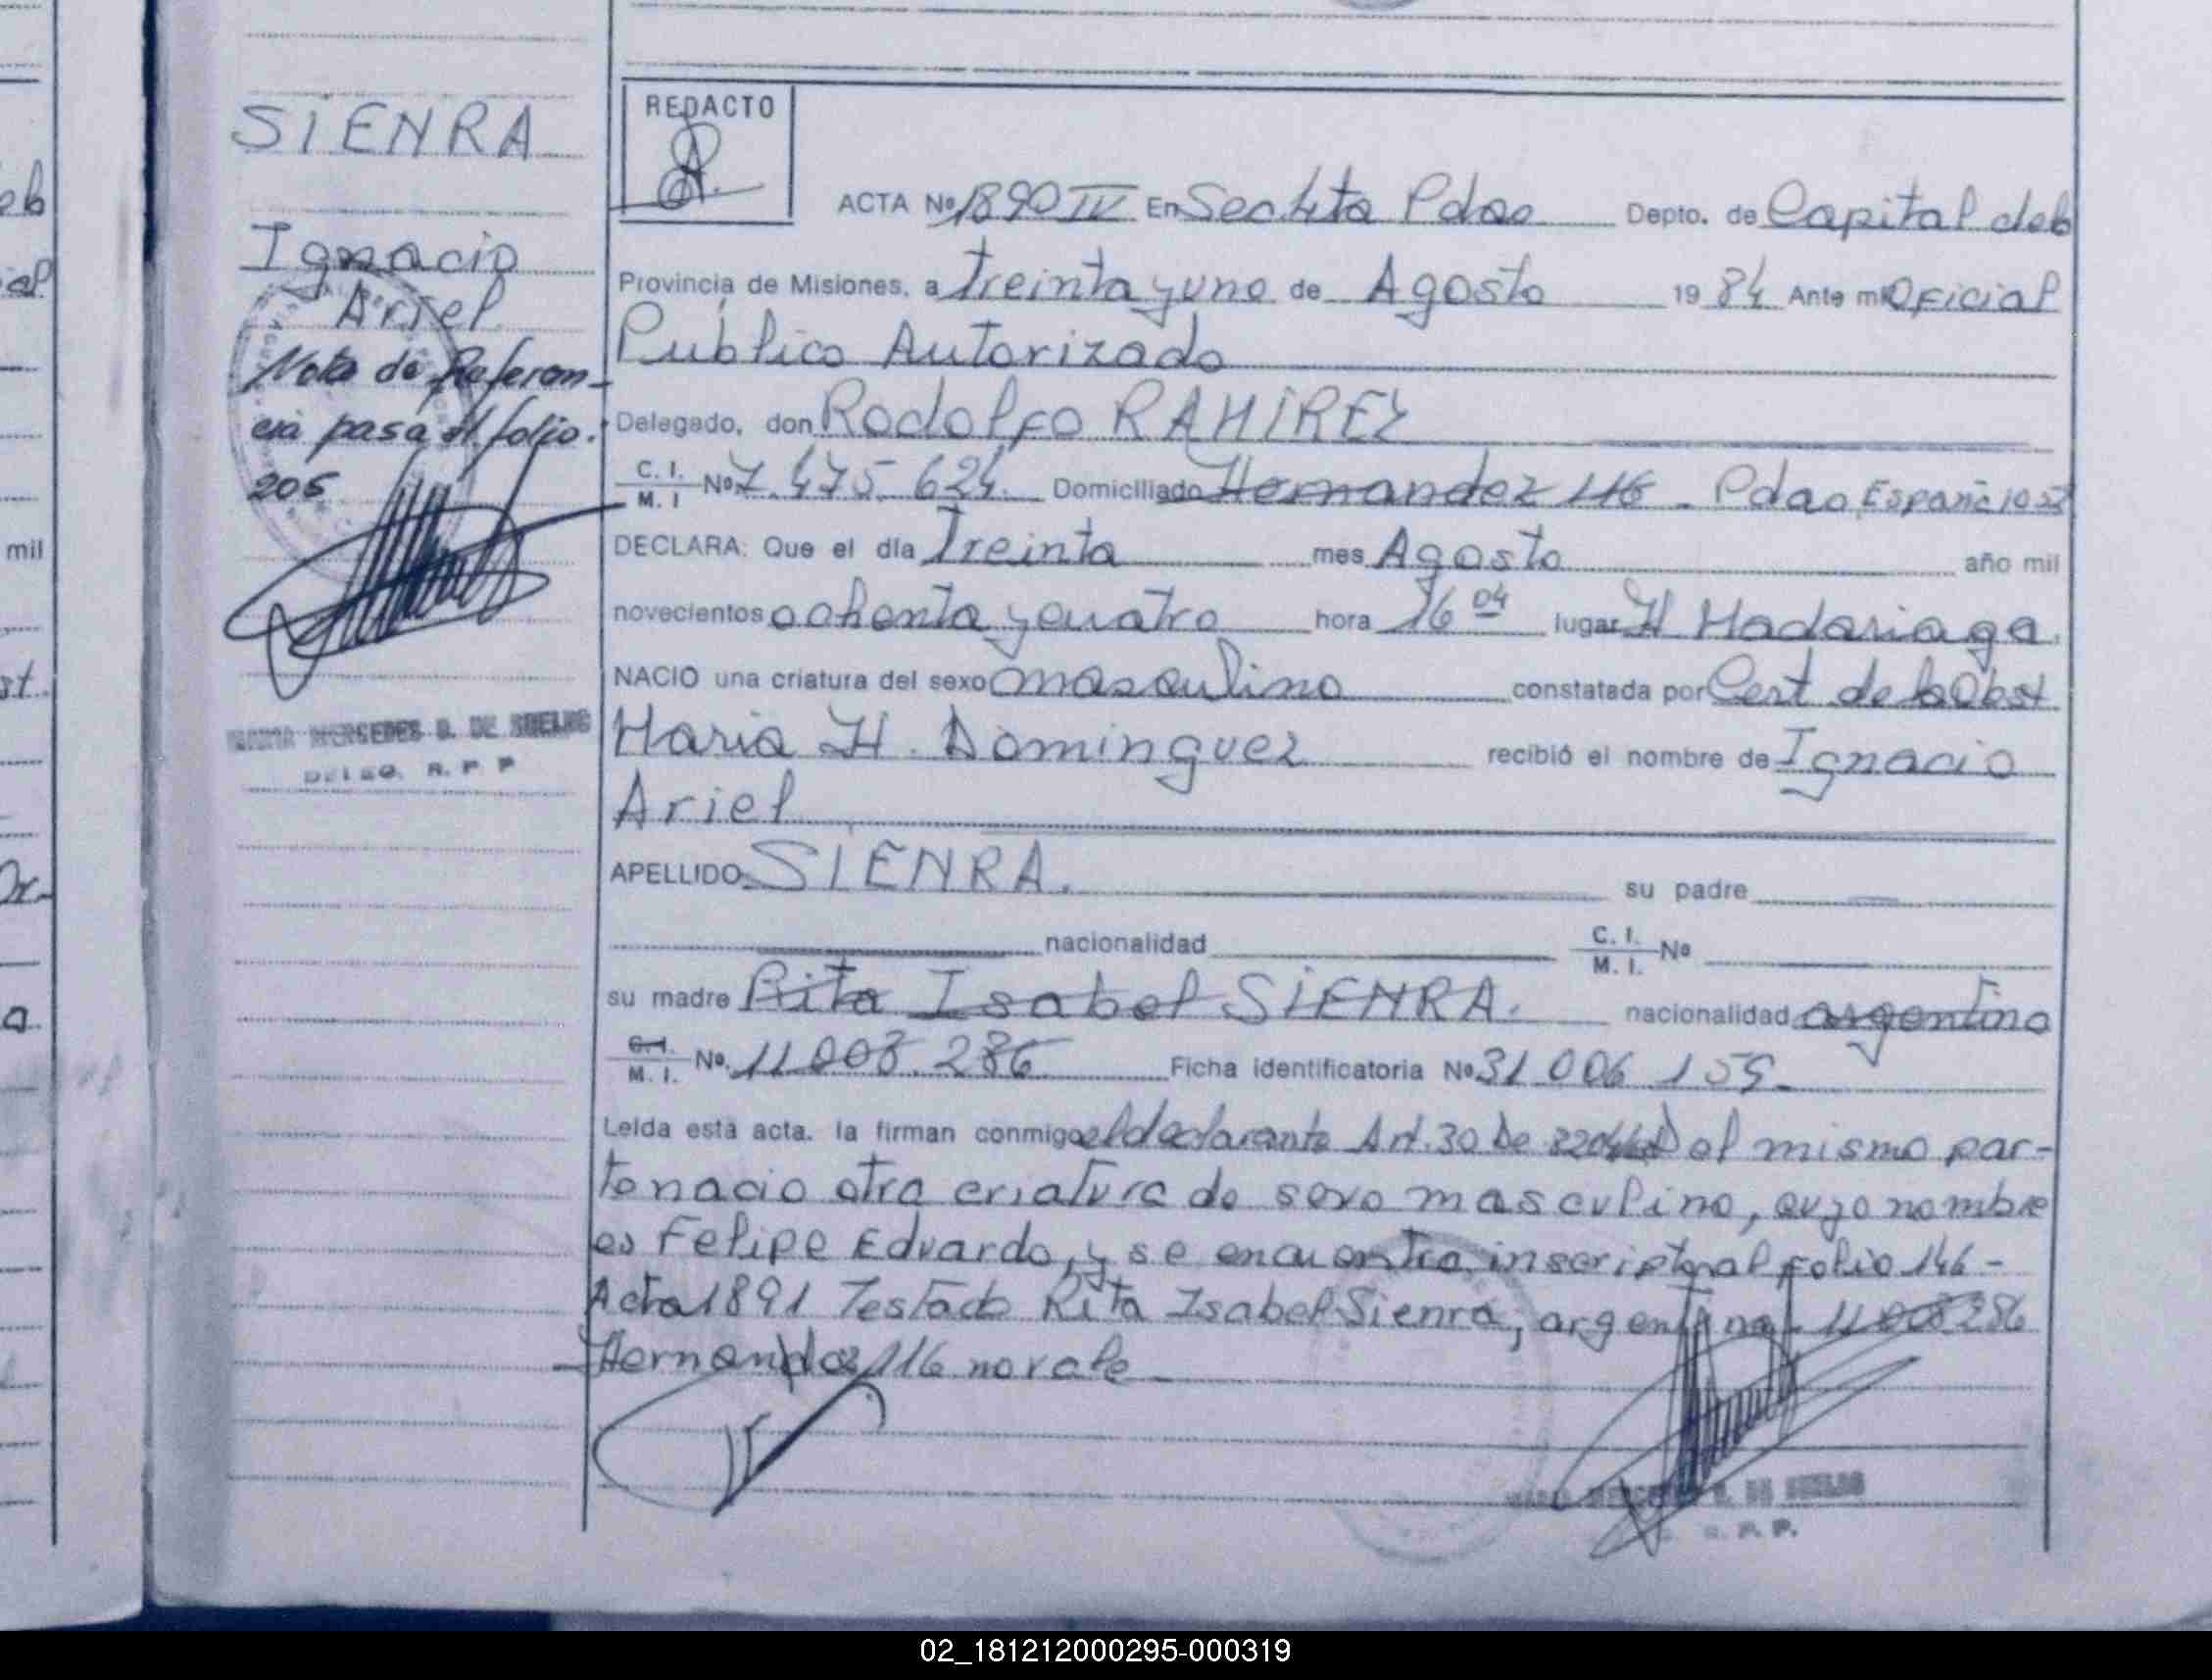 SIENRA
Ignacio
Ariel
Nota de Referen-
cia pasa al folio.
205
MARIA MERCEDES B. DE SUELDO
DELEG. R. P. P
REDACTO
ACTA Nº 1890 IV En Sec 4ta Pdas Depto. de Capital de la
Provincia de Misiones, a treinta y uno de Agosto 19 84 Ante mi Oficial
Público Autorizado
Delegado, don Rodolfo RAMIREZ
C. I. M. I Nº 7.475.624. Domiciliado Hernandez 116 - Pdas España
DECLARA: Que el día Treinta mes Agosto año mil
novecientos ochenta y cuatro hora 16 04 lugar H Madariaga
NACIO una criatura del sexo masculino constatada por Cert de la Obst
Maria H. Dominguez recibió el nombre de Ignacio
Ariel
APELLIDO SIENRA. su padre
nacionalidad C. I. M. I. Nº
su madre Rita Isabel SIENRA. nacionalidad argentina
C. I. M. I. Nº 11.008.286 Ficha identificatoria Nº 31 006 159-
Leida esta acta. la firman conmigo el declarante Art. 30 De Del mismo par-
to nacio otra criatura de sexo masculino, cuyo nombre
es Felipe Eduardo, y se encuentra inscripto al folio 146 -
Acta 1891 Testado Rita Isabel Sienra, argentina - 11008286
Hernandez 116 no vale
DE SUELDO
R. P. P.
mil
02_181212000295-000319